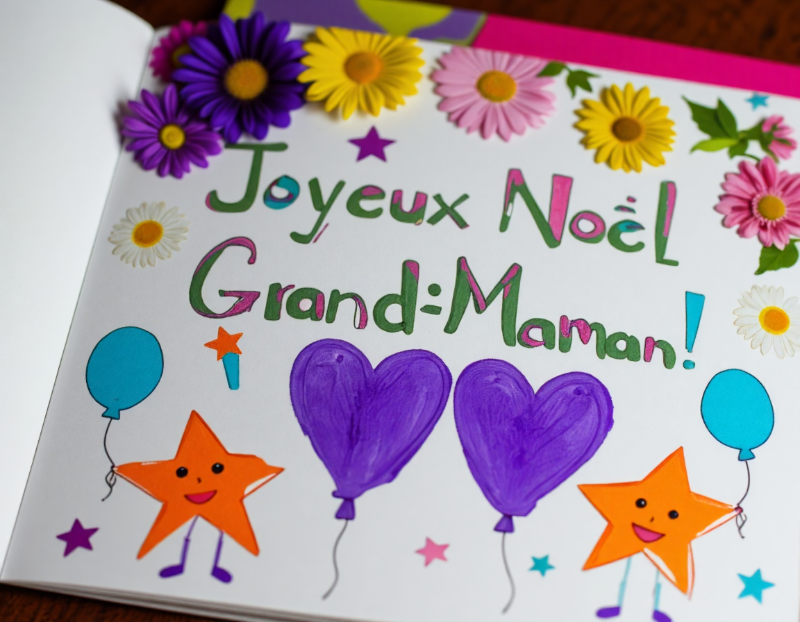 Joyeux Noël
Grand-Maman!